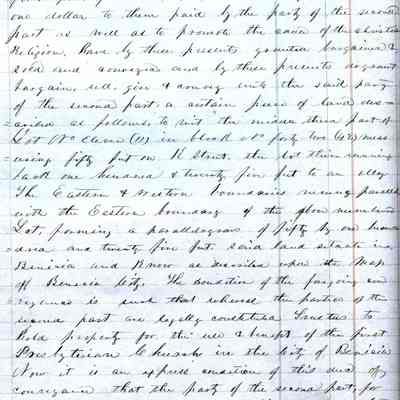 one dollar to them paid by the party of the second
part as well as to promote the cause of the christian
Religion. Have by these presents granted bargained &
sold and conveyed and by these presents do grant
bargain, sell, give & convey unto the said party
of the second part a certain piece of land des-
cribed as follows to wit the middle third part of
Lot No eleven (11) in block No forty two (42) meas-
uring fifty feet on K Street, the lot then running
back one hundred & twenty five feet to an alley
The Eastern & Western boundaries running parallel
with the Eastern boundary of the above mentioned
Lot, forming a parallelogram of fifty by one hun-
dred and twenty five feet. said land situate in
Benicia and Know as described upon the Map
of Benicia City. The condition of the foregoing con-
veyance is such that whereas the parties of the
second part are legally constituted Trustees to
hold property for the use & benefit of the first
Presbyterian Church in the City of Benicia
Now it is an express condition of this deed of
conveyance that the party of the second part, for